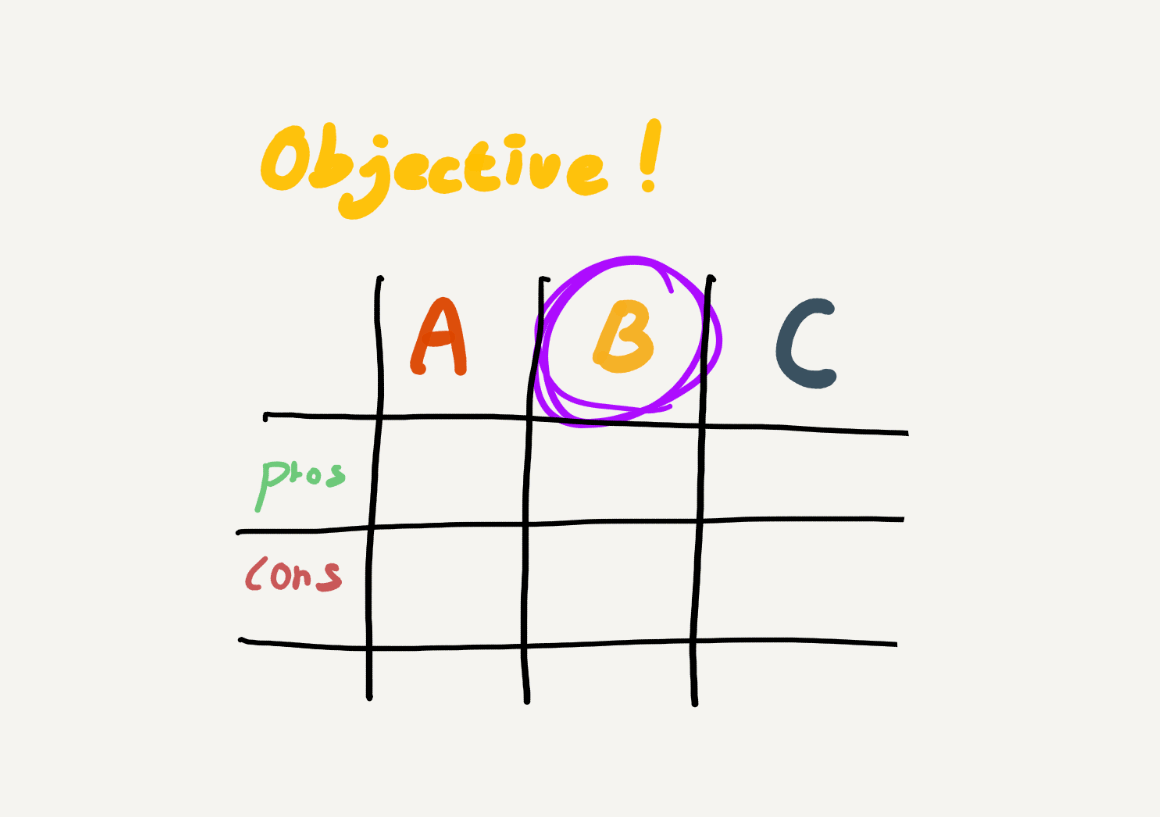 Objective !
A B C
pros
cons